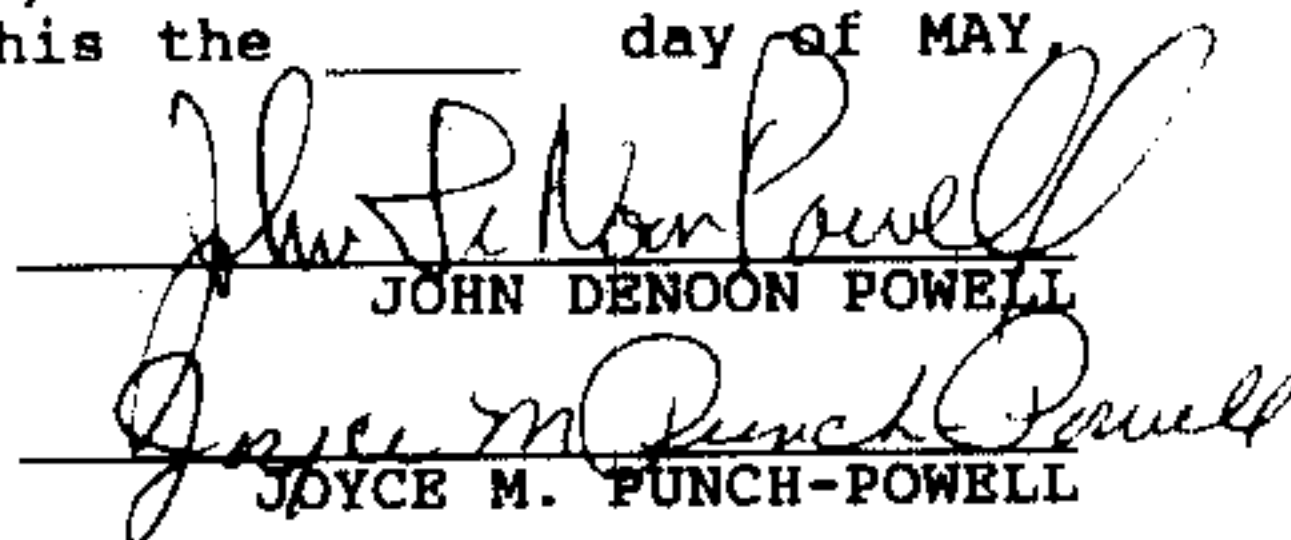 his the ______ day of MAY,
John DeNoon Powell
JOHN DENOON POWELL
Joyce M Punch-Powell
JOYCE M. PUNCH-POWELL